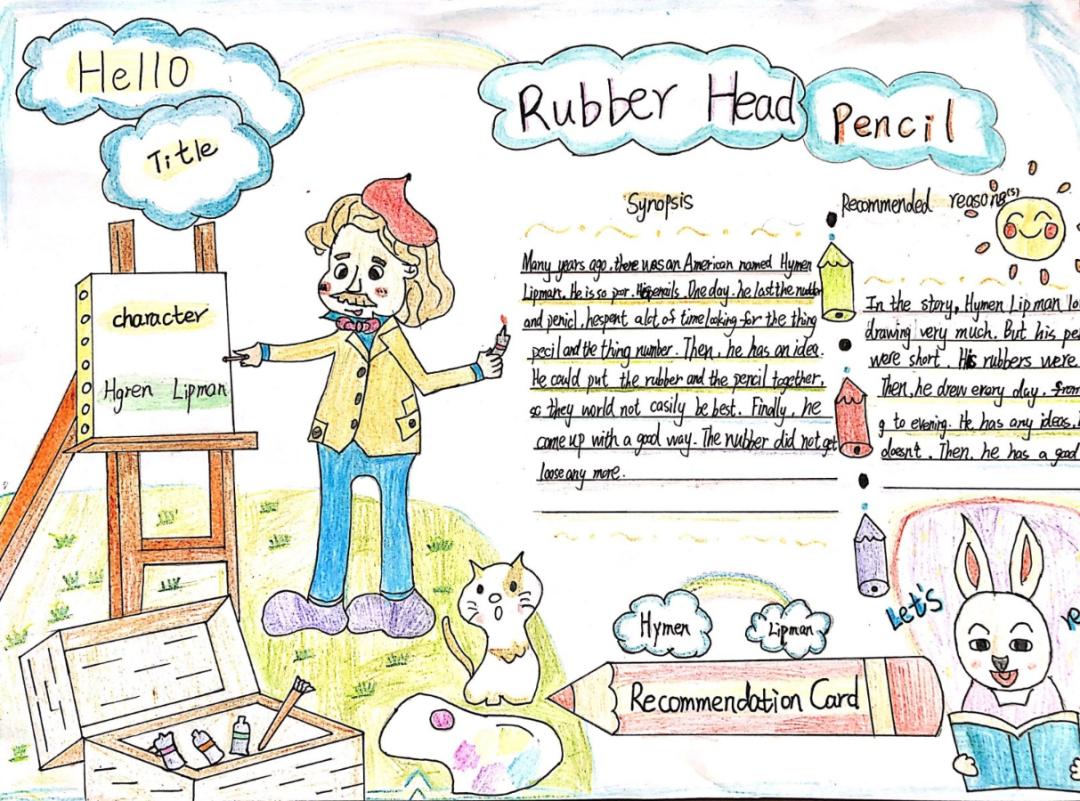 Hello
Title
Rubber Head
Pencil
character
Hgren Lipman
Synopsis
Many years ago, there was an American named Hymen
Lipman. He is so por. One day, he lost the rubber
and penicl, he spent a lot of time looking for the thing
pecil and the thing number. Then, he has an idea.
He could put the rubber and the pencil together,
so they world not easily be best. Finally, he
come up with a good way. The rubber did not get
loose any more.
Recommended reason(s)
In the story, Hymen Lipman lo
drawing very much. But his pe
were short. His rubbers were
Then, he drew erary day. from
g to evening. He has any ideas, i
doesnt. Then, he has a good
Hymen
Lipman
Recommendation Card
Let's
re